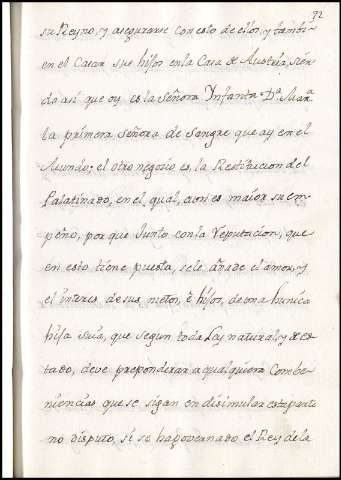 32
su Reyno, y asegurarse con esto de ellos, y tambi-
en el Casar sus hijos en la Casa de Austria, sien
do así que oy es la Señora Ynfanta D.ª Mar.ª
la primera señora de sangre que ay en el
Mundo; el otro negocio es, la Restitucion del
Palatinado, en el qual, aun es maior su em-
peño, por que Junto con la Reputacion, que
en esto tiene puesta, se le añade el amor, y
el interes, de sus nietos, è hijos, de una hunica
hija suia, que segun toda Ley natural, y de es-
tado, deve preponderar a qualquiera Combe-
niencias que se sigan en disimular esta parte
no disputo, si se ha governado el Rey de la